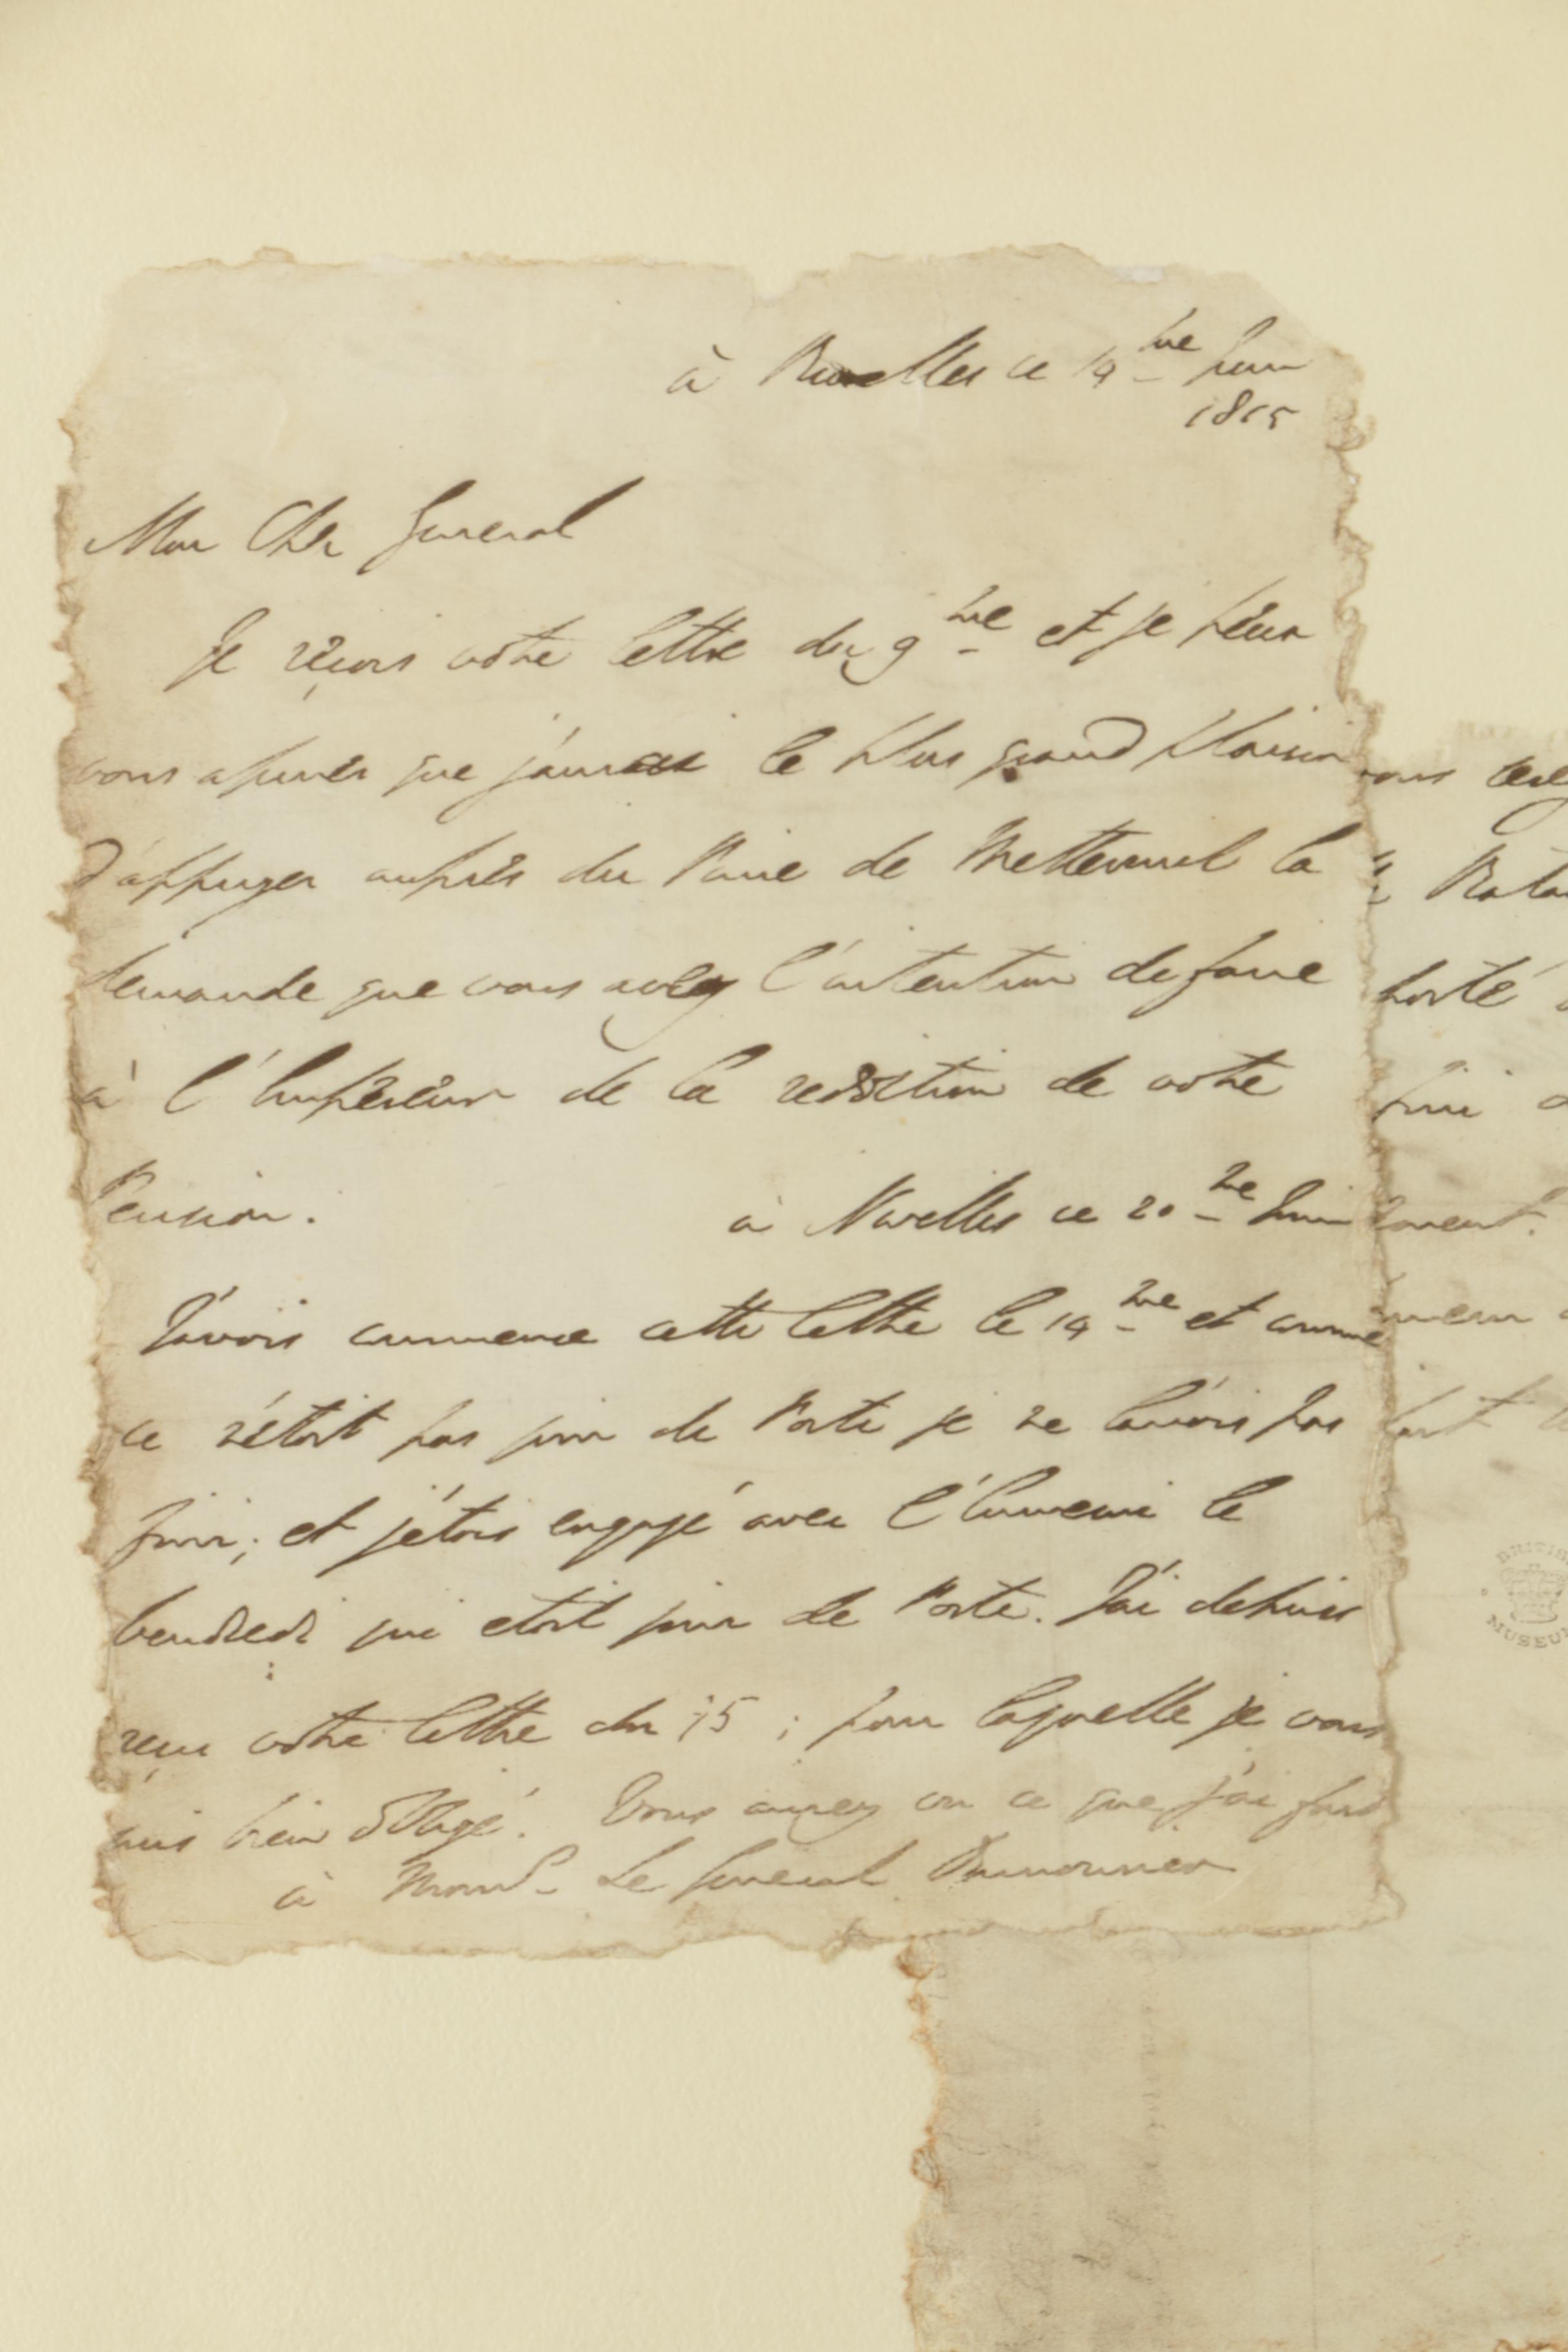 à Bruxelles ce 14me Juin
1815
Mon Cher General
Je réçois votre lettre du 9me et je peux
vous assurer que j'aurai le plus grand plaisir
d'appuyer auprès du Prince de Metternich la
demande que vous avez l'intention de faire
à l'Empereur de la reduction de votre
Pension.
à Nivelles ce 20me Juin
J'avois commencé cette lettre le 14me et comme
ce n'étoit pas jour de Poste je ne l'avois pas
fini; et j'étois engagé avec l'Ennemi le
Vendredi qui etoit jour de Poste. J'ai depuis
reçu votre lettre du 15; pour laquelle je vous
suis bien obligé. Vous aurez vu ce que j'ai fait
à Monsr Le General Dumourier
vous
porté
fini
ment.
BRITISH
MUSEUM